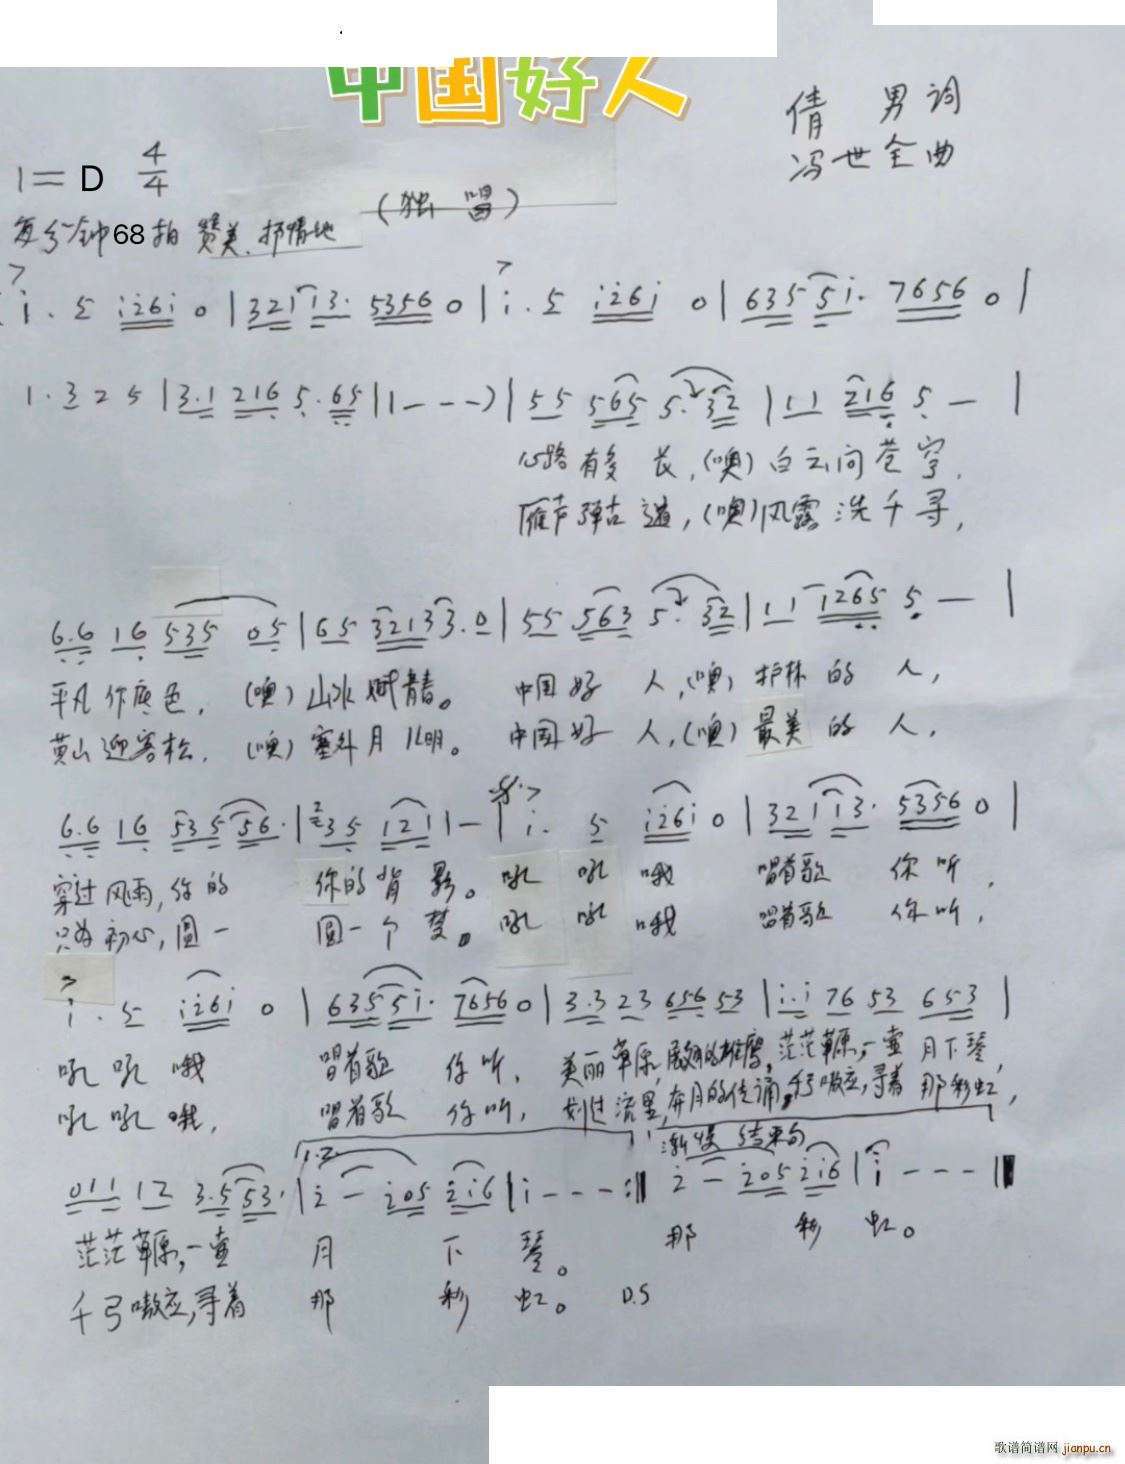 中国好人
倩 男 词
冯世全曲
1= D 4/4
(独 唱)
每分钟68拍 赞美、抒情地
i. 5 i i 6 i 0 | 3 2 1 i 3. 5 3 5 6 0 | i. 5 i i 6 i 0 | 6 3 5 5 i. 7 6 5 6 0 |
1. 3 2 5 | 3. 1 2 1 6 5. 6 5 | 1 - - - ) | 5 5 5 6 5 5. 3 2 | 1 1 2 1 6 5 - |
心路有多 长,(噢)白云问苍穹,
雁声弹古道,(噢)风露洗千寻,
6. 6 1 6 5 3 5 0 5 | 6 5 3 2 1 3 3. 0 | 5 5 5 6 3 5. 3 2 | 1 1 1 2 6 5 5 - |
平凡作底色, (噢)山水赋青。 中国好 人,(噢)护林的 人,
黄山迎客松, (噢)塞外月儿明。 中国好 人,(噢)最美的 人,
6. 6 1 6 5 3 5 5 6. | 2 3 5 1 2 1 1 - | i. 5 i i 6 i 0 | 3 2 1 i 3. 5 3 5 6 0 |
穿过风雨,你的 你的背 影。吼 吼 哦 唱首歌 你听,
只为初心,圆一 圆一个 梦。吼 吼 哦 唱首歌 你听,
i. 5 i i 6 i 0 | 6 3 5 5 i. 7 6 5 6 0 | 3. 3 2 3 6 5 6 5 3 | i. i 7 6 5 3 6 5 3 |
吼 吼 哦 唱首歌 你听, 美丽草原,展翅的雄鹰,茫茫草原,一壶 月下琴,
吼 吼 哦, 唱首歌 你听, 划过流星,奔月的传诵,千弓嗷应,寻着 那彩虹,
1.2. 渐慢 结束句
0 1 1 1 2 3. 5 5 3. | 2 - 2 0 5 2 i 6 | i - - - :| 2 - 2 0 5 2 i 6 | i - - - |
茫茫草原,一壶 月 下 琴。 那 彩 虹。
千弓嗷应,寻着 那 彩 虹。 D.S
歌谱简谱网 jianpu.cn